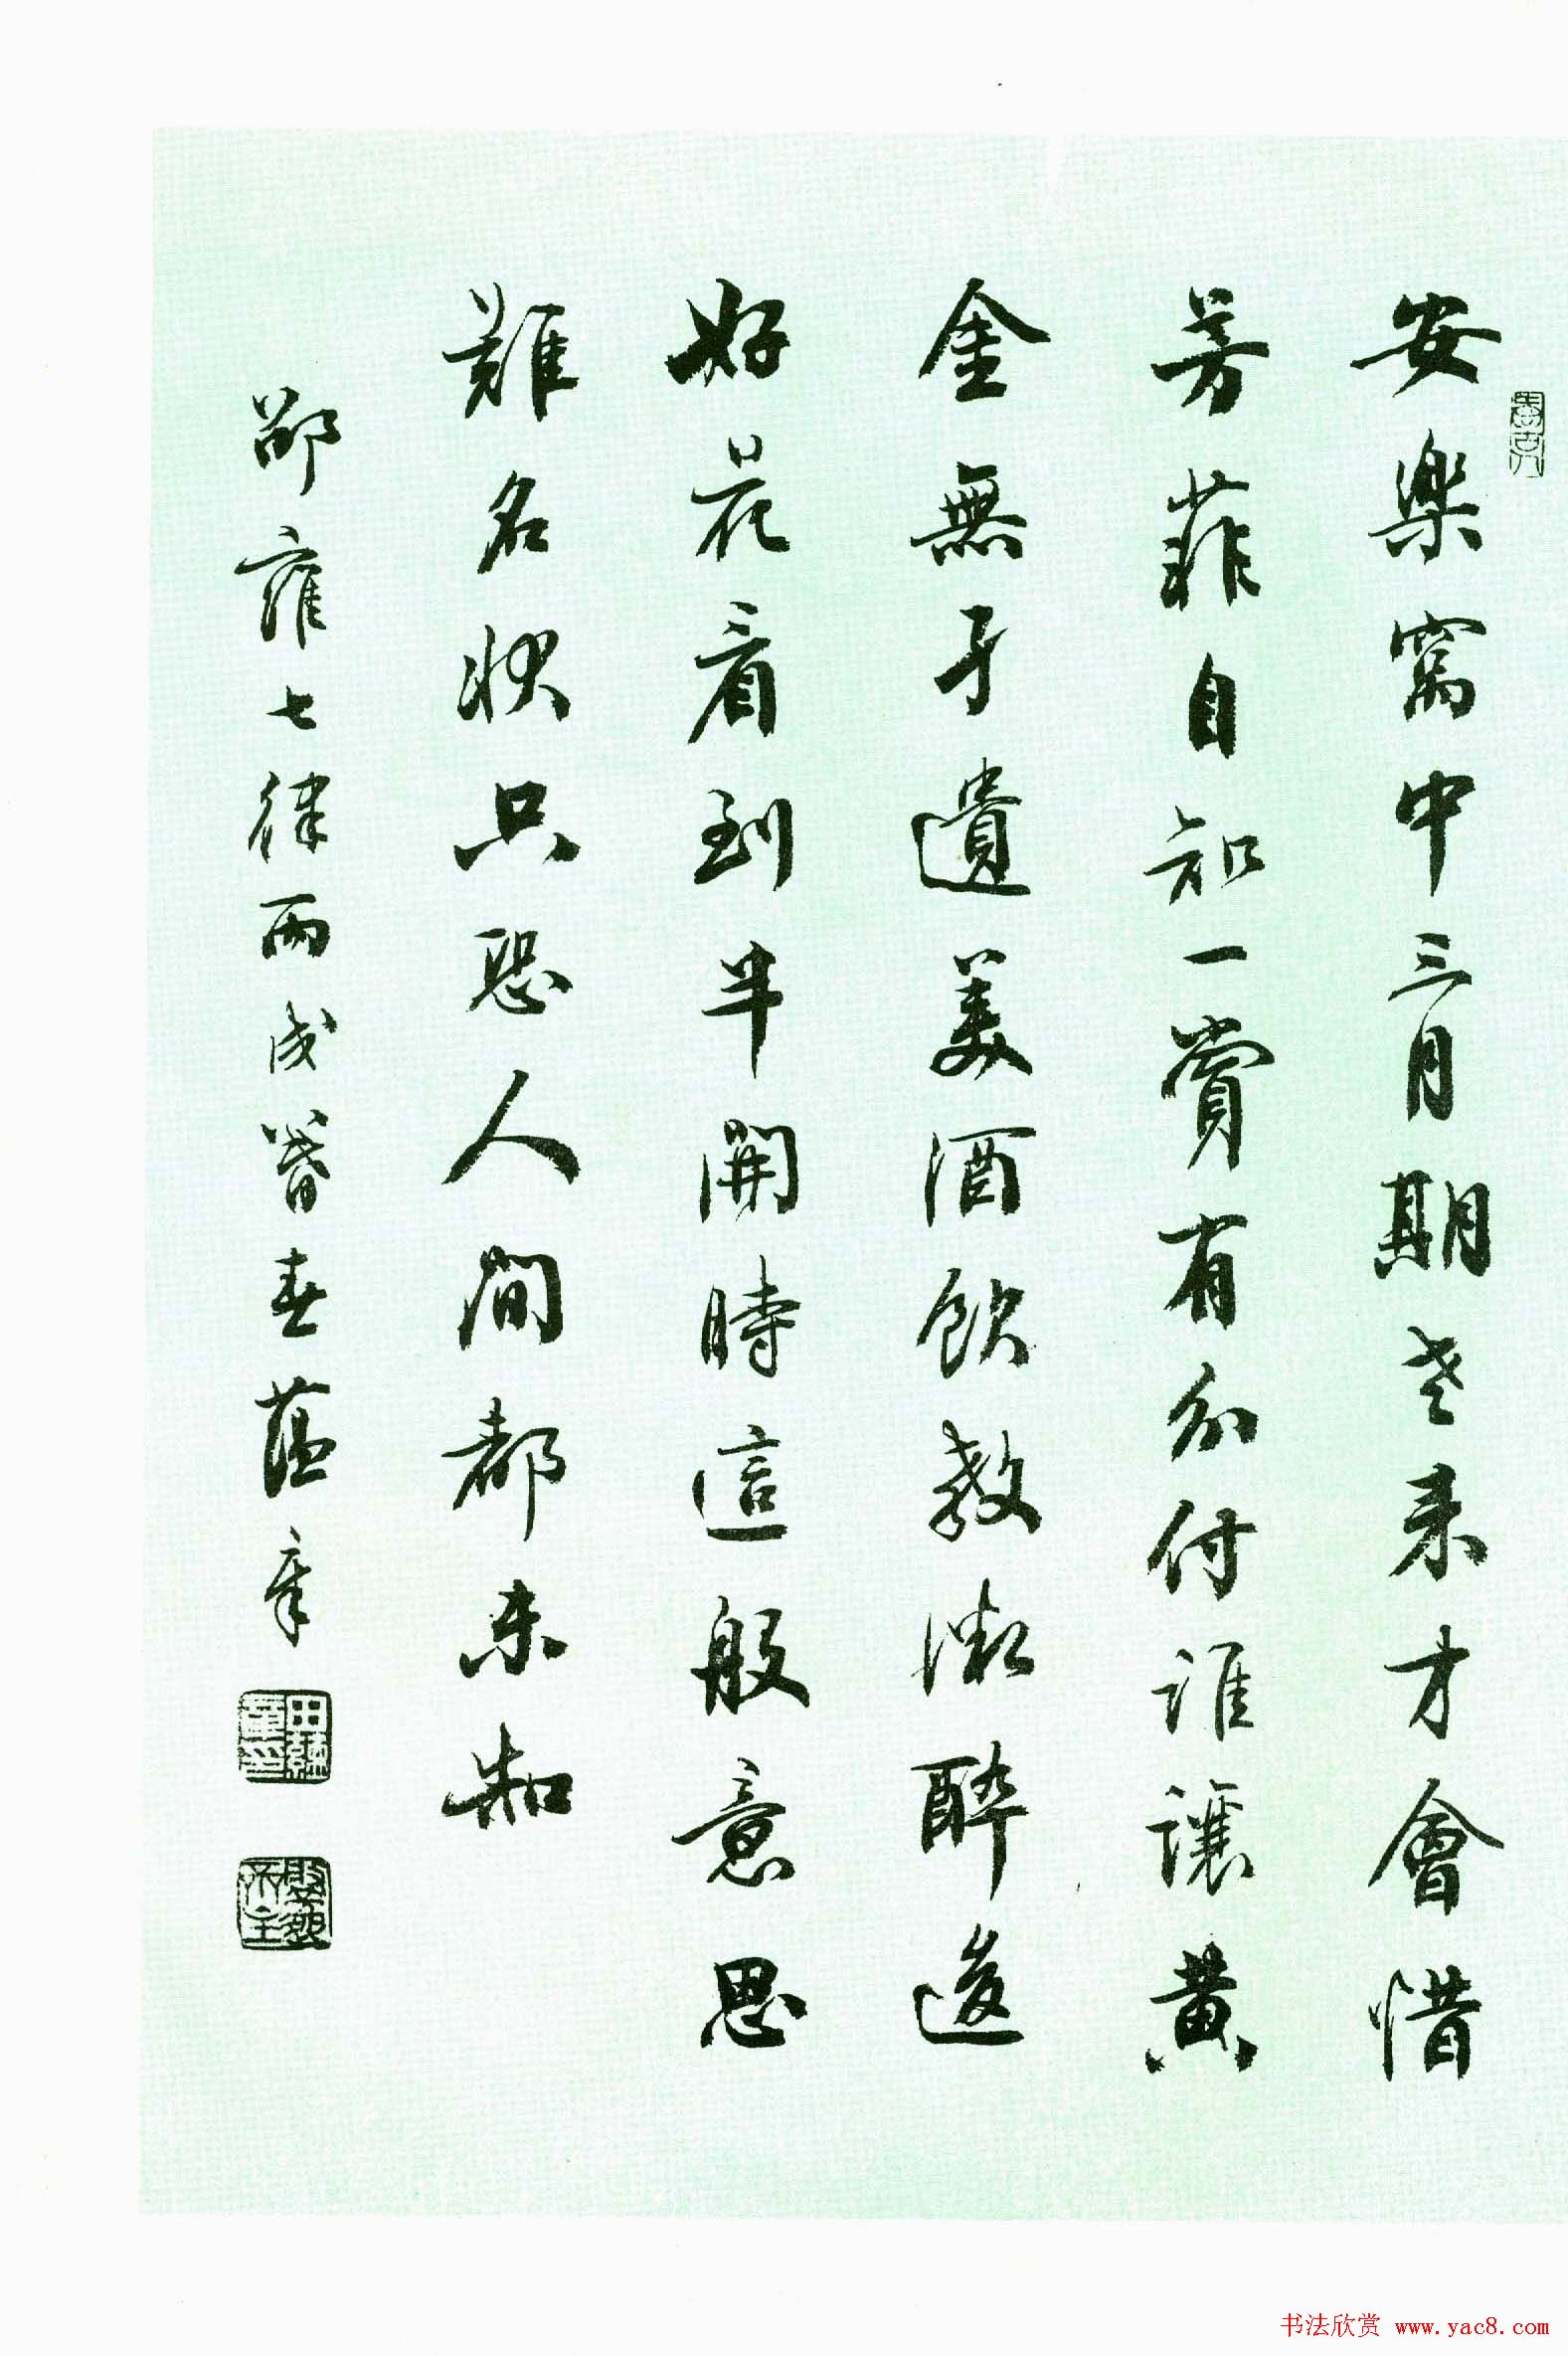 安樂窩中三月期老来才會惜
芳菲自知一賞有分付誰讓黄
金無孑遺美酒飲教微醉後
好花看到半開時這般意思
難名狀只恐人間都未知
邵雍七律丙戌暮春蕴章
田蘊章印
书法欣赏 www.yac8.com